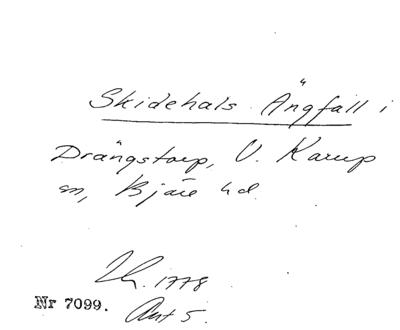 Skidehals Ängfall i
Drängstorp, V. Karup
sn, Bjäre hd.
1778
Nr 7099.
Akt 5.